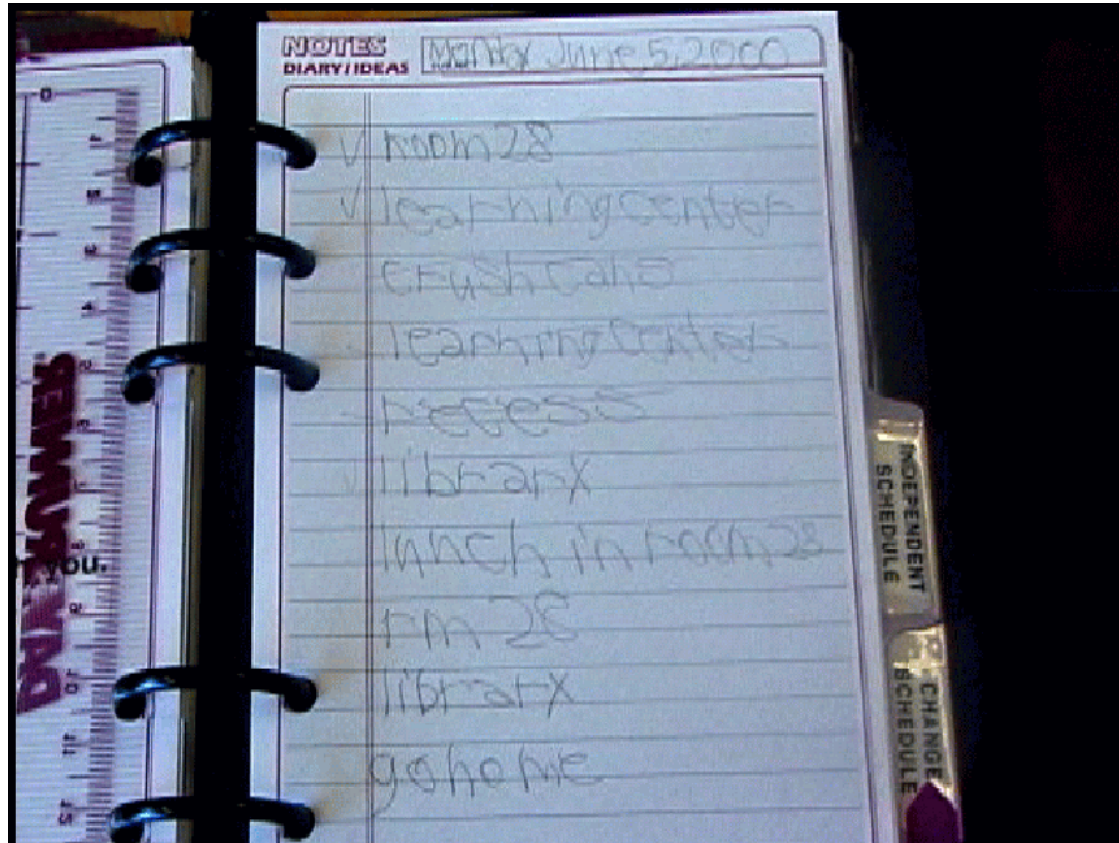 NOTES
DIARY/IDEAS
Monday June 5, 2000
✓ room 28
✓ learning center
crush cans
learning center
recess
library
lunch in room 28
rm 28
library
go home
INDEPENDENT
SCHEDULE
CHANGE
SCHEDULE
DAY RUNNER
you.